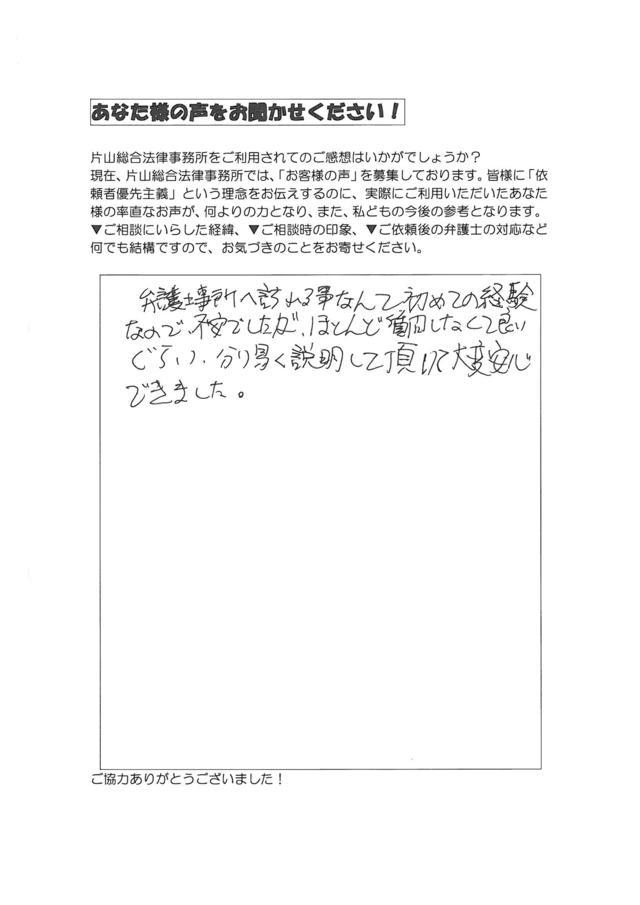 あなた様の声をお聞かせください！
片山総合法律事務所をご利用されてのご感想はいかがでしょうか？
現在、片山総合法律事務所では、「お客様の声」を募集しております。皆様に「依
頼者優先主義」という理念をお伝えするのに、実際にご利用いただいたあなた
様の率直なお声が、何よりの力となり、また、私どもの今後の参考となります。
▼ご相談にいらした経緯、▼ご相談時の印象、▼ご依頼後の弁護士の対応など
何でも結構ですので、お気づきのことをお寄せください。
弁護士事所へ訪れる事なんて初めての経験
なので不安でしたが、ほとんど質問しなくて良い
ぐらい、分り易く説明して頂いて大変安心
できました。
ご協力ありがとうございました！